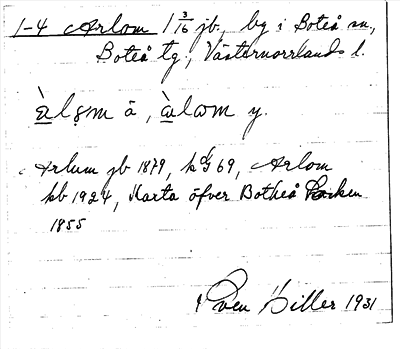 1-4 Arlom 1 3/16 jb., by i Boteå sn.,
Boteå tg., Västernorrlands l.
àlsm ä, àlωm y.
Arlum jb 1879, kG 69, Arlom
kb 1924, Karta öfver Botheå Socken
1855
Sven Hiller 1931